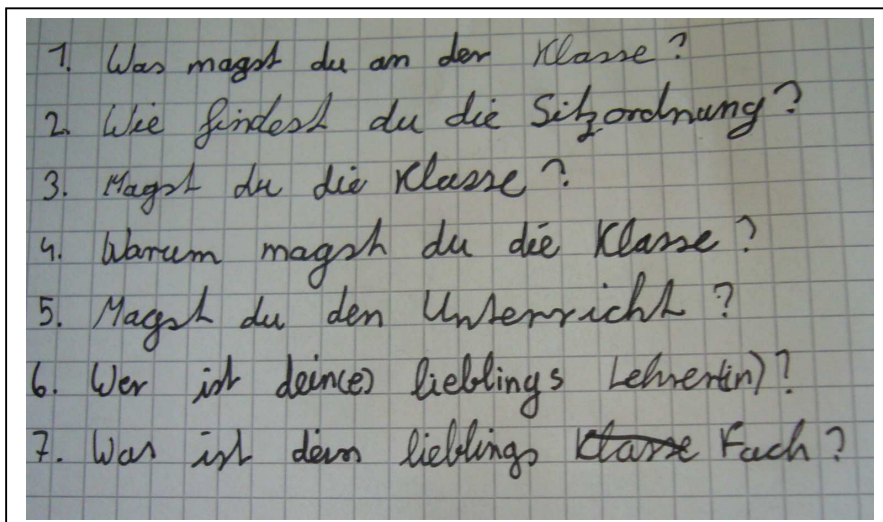 1. Was magst du an der Klasse?
2. Wie findest du die Sitzordnung?
3. Magst du die Klasse?
4. Warum magst du die Klasse?
5. Magst du den Unterricht?
6. Wer ist dein(e) lieblings Lehrer(in)?
7. Was ist dein lieblings Klasse Fach?